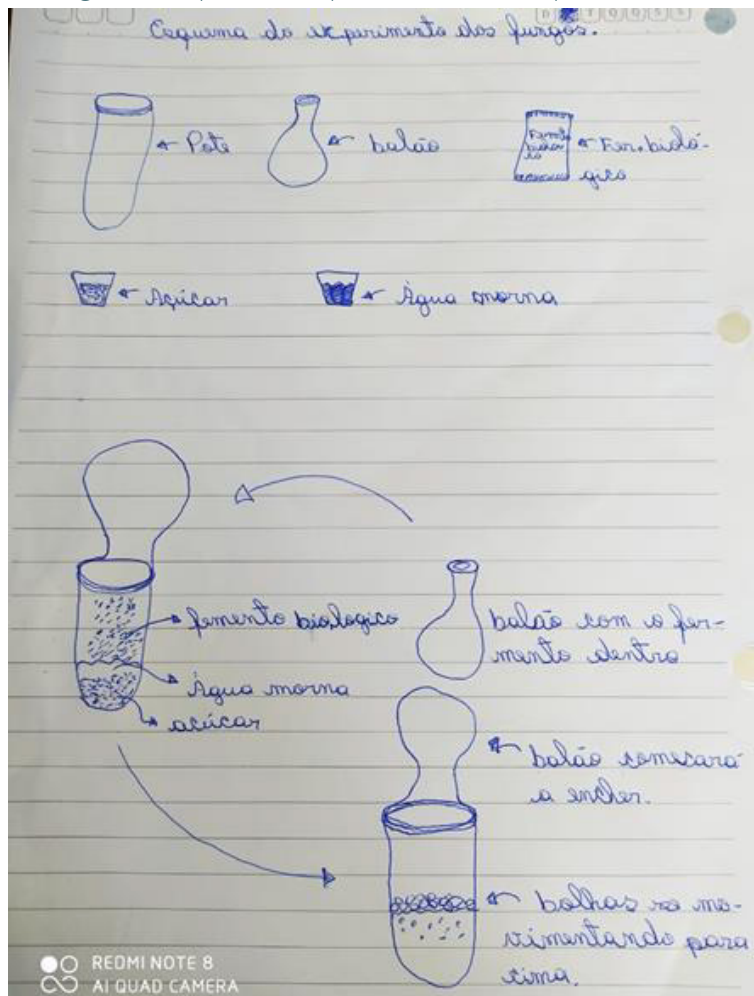 D S T Q Q S S
Esquema do experimento dos fungos.
Pote
balão
Ferm. biológico
Fer. bioló-
gico
Açúcar
Água morna
femento biologico
Água morna
acúcar
balão com o fer-
mento dentro
balão comecará
a encher.
bolhas se mo-
vimentando para
cima.
REDMI NOTE 8
AI QUAD CAMERA